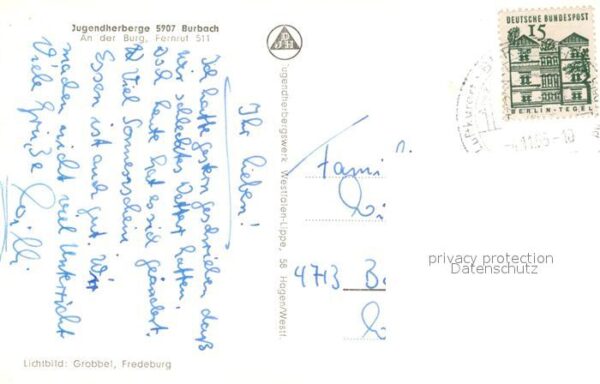 Jugendherberge 5907 Burbach
An der Burg, Fernruf 511
DEUTSCHE BUNDESPOST
15
BERLIN-TEGEL
Luftkurort
Ihr lieben!
Ich hatte gestern geschrieben daß
wir schlechtes Wetter hatten!
Doch heute hat es sich geändert.
Viel Sonnenschein
Essen ist auch gut. Wir
machen nicht viel Unterricht
Viele Grüße
Willi
Jugendherbergswerk Westfalen-Lippe, 58 Hagen/Westf.
Fami
4713 B
privacy protection
Datenschutz
Lichtbild: Grobbel, Fredeburg